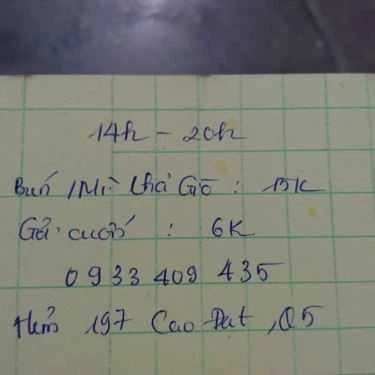 14h - 20h
Bún /Mì Chả Giò : 15K
Gỏi cuốn : 6K
0933 409 435
Hẻm 197 Cao Đạt, Q5